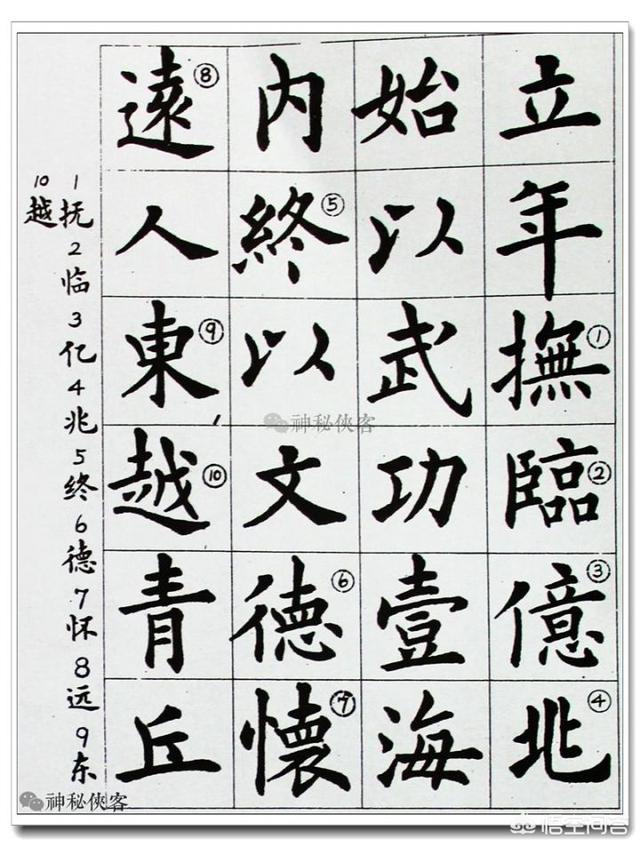 立年撫①臨②億③兆④
始以武功壹海
内終⑤以文德⑥懷⑦
遠⑧人東⑨越⑩青丘
1抚2临3亿4兆5终6德7怀8远9东
10越
神秘俠客
神秘俠客
悟空问答